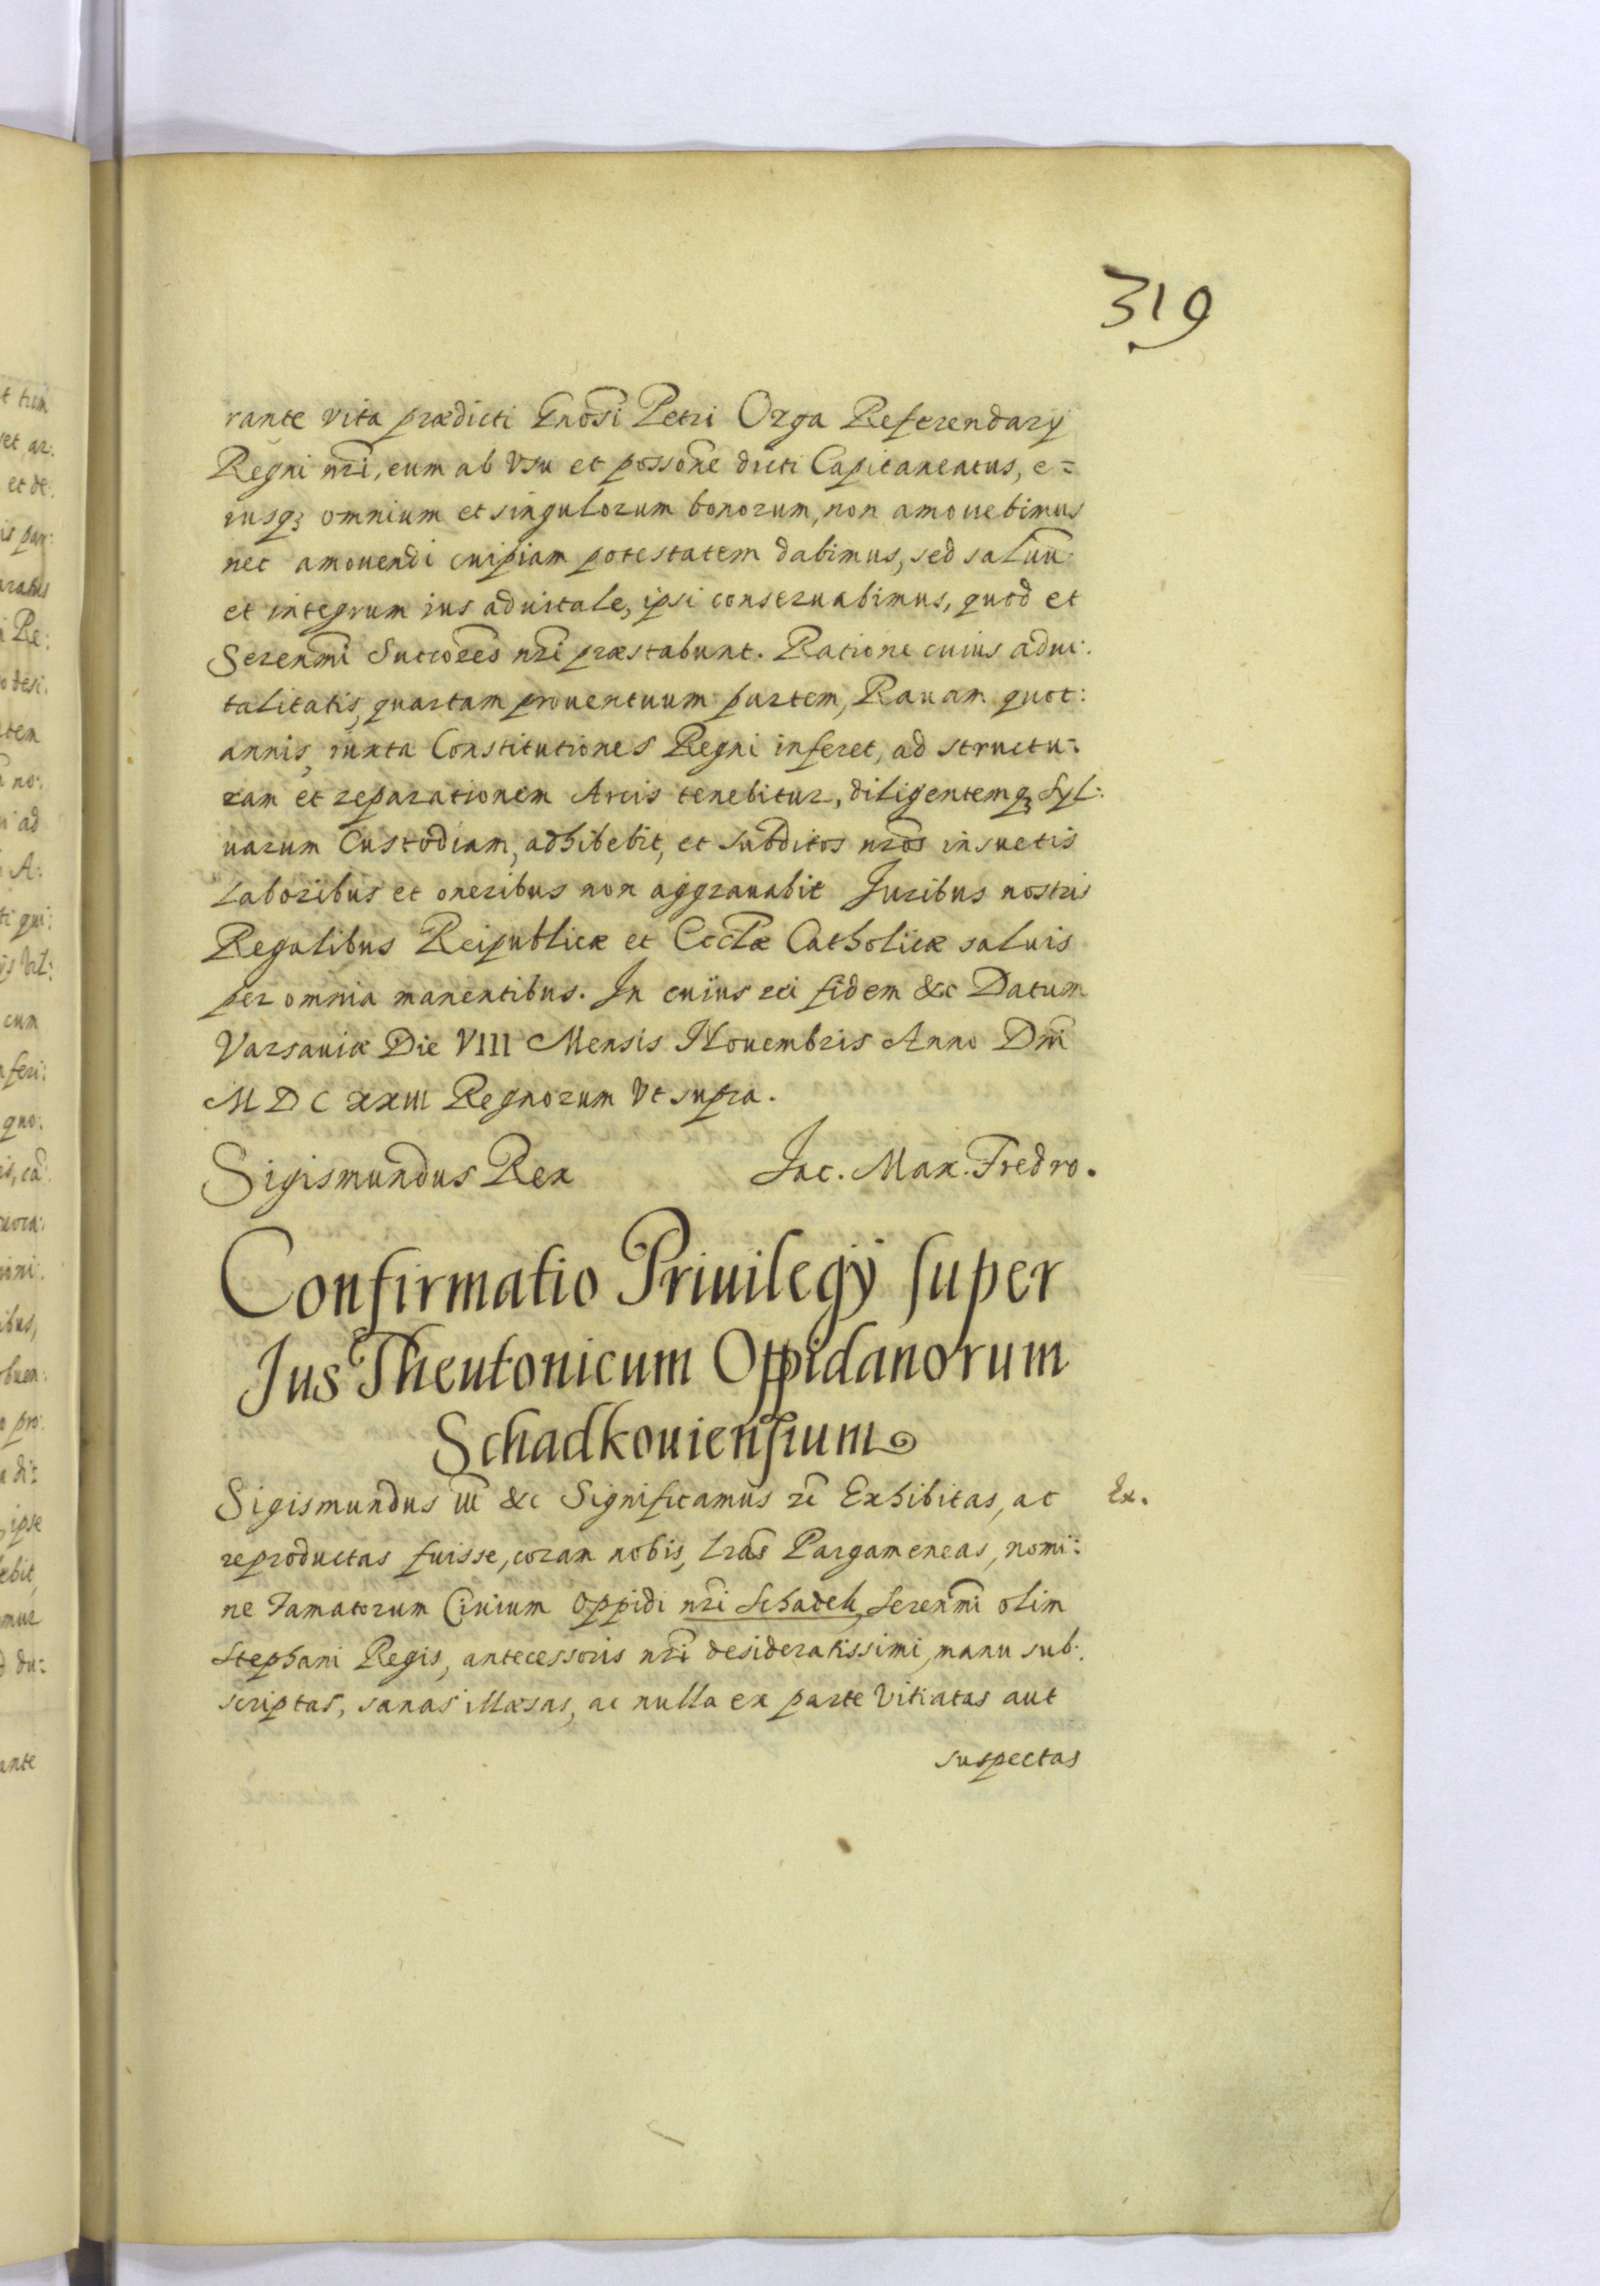 319
rante vita prædicti Gnosi Petri Ozga Referendarÿ
Regni nri, eum ab Vsu et possone dicti Capitaneatus, e=
iusq3 omnium et singulorum bonorum, non amouebimus
nec amouendi cuipiam potestatem dabimus, sed saluu
et integrum ius aduitale, ipsi conseruabimus, quod et
Serenmi Succores nri præstabunt. Ratione cuius adui:
talitatis, quartam prouentuum partem, Rauam quot:
annis, iuxta Constitutiones Regni inferet, ad structu:
ram et reparationem Arcis tenebitur, diligentemq3 Syl:
uarum Custodiam, adhibebit, et subditos nros insuetis
Laboribus et oneribus non aggrauabit Juribus nostris
Regalibus Reipublicæ et Eccltæ Catholicæ saluis
per omnia manentibus. In cuius rei fidem &c Datum
Varsauiæ Die VIII Mensis Nouembris Anno Dni
MDCXXIII Regnorum Vt supra.
Sigismundus Rex Jac. Max. Fredro.
Confirmatio Priuilegÿ super
Jus Theutonicum Oppidanorum
Schadkouiensium
Sigismundus III &c Significamus ec Exhibitas, ac Ex.
reproductas fuisse, coram nobis, Lras Pargameneas, nomi:
ne Famatorum Ciuium Oppidi nri Schadek, Serenmi olim
Stephani Regis, antecessoris nri desideratissimi, manu sub:
scriptas, sanas illæsas, ac nulla ex parte Vitiatas aut
suspectas